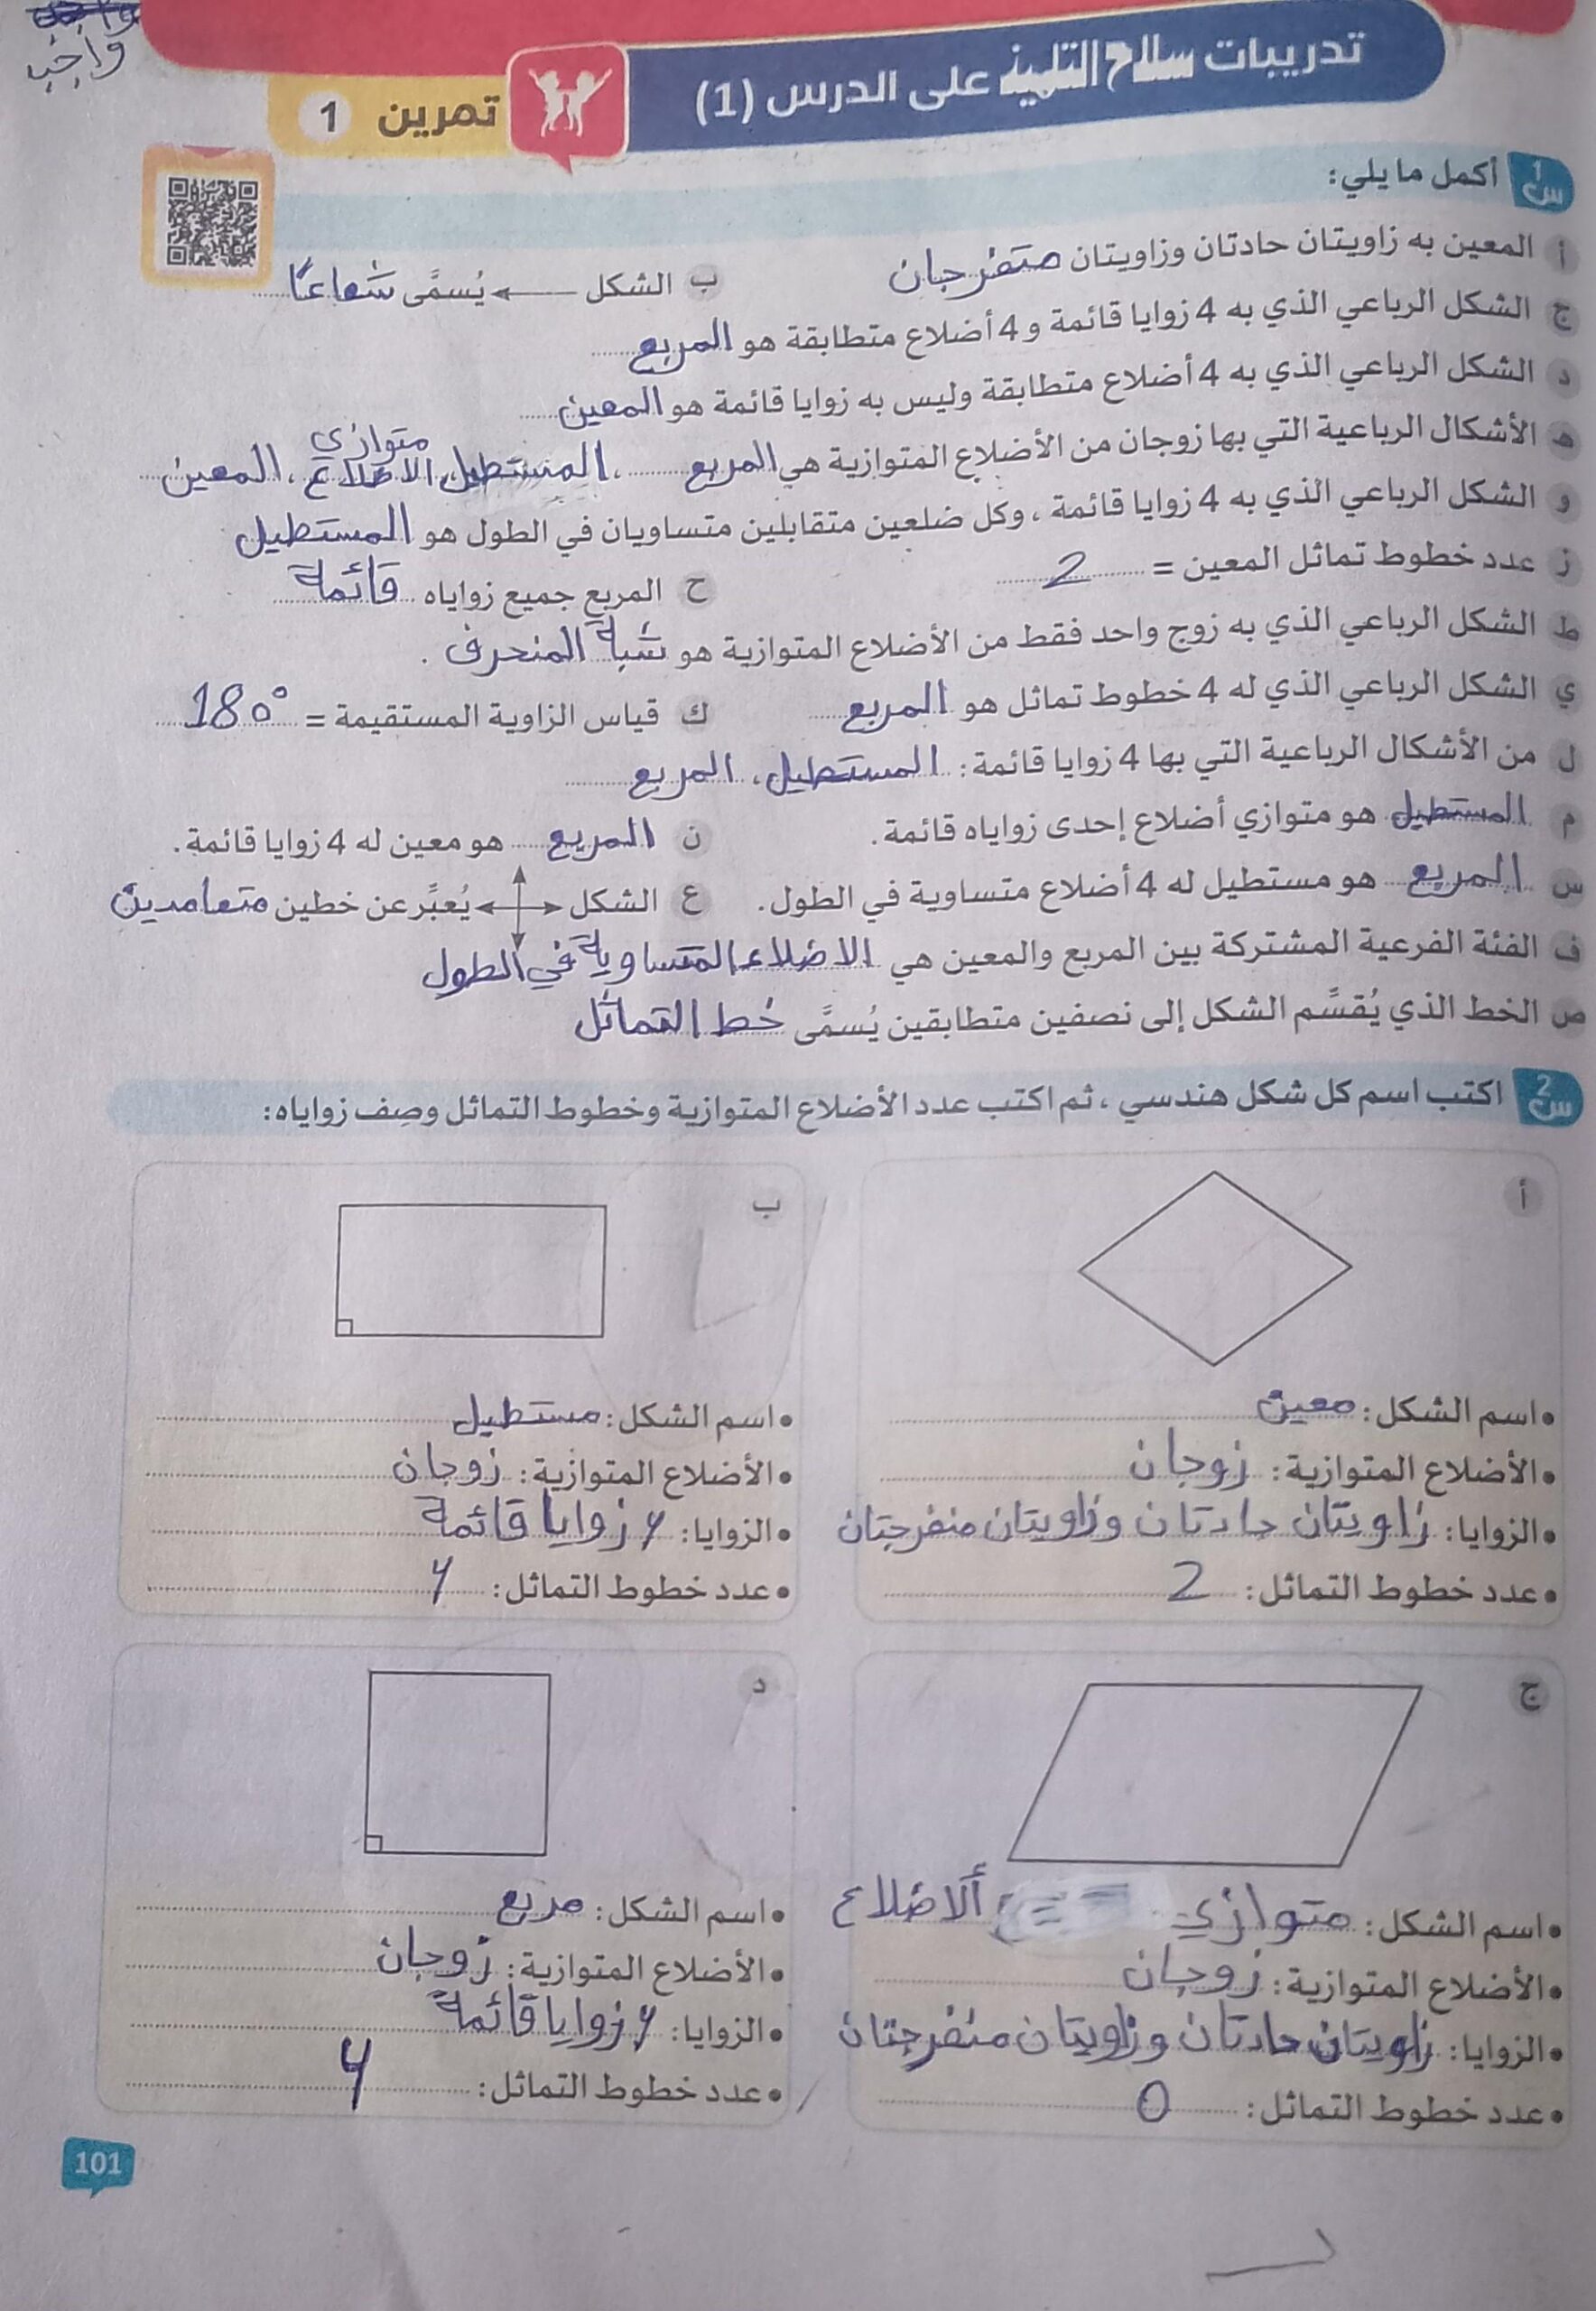 واجب
تدريبات سلاح التلميذ على الدرس (1)
تمرين 1
س1 أكمل ما يلي:
أ المعين به زاويتان حادتان وزاويتان متفرجان
ب الشكل يُسمَّى شعاعًا
ج الشكل الرباعي الذي به 4 زوايا قائمة و 4 أضلاع متطابقة هو المربع
د الشكل الرباعي الذي به 4 أضلاع متطابقة وليس به زوايا قائمة هو المعين
هـ الأشكال الرباعية التي بها زوجان من الأضلاع المتوازية هي المربع ، المستطيل، متوازي الاضلاع ، المعين
و الشكل الرباعي الذي به 4 زوايا قائمة ، وكل ضلعين متقابلين متساويان في الطول هو المستطيل
ز عدد خطوط تماثل المعين = 2
ح المربع جميع زواياه قائمة
ط الشكل الرباعي الذي به زوج واحد فقط من الأضلاع المتوازية هو شبة المنحرف .
ي الشكل الرباعي الذي له 4 خطوط تماثل هو المربع
ك قياس الزاوية المستقيمة = 180°
ل من الأشكال الرباعية التي بها 4 زوايا قائمة : المستطيل ، المربع
م المستطيل هو متوازي أضلاع إحدى زواياه قائمة.
ن المربع هو معين له 4 زوايا قائمة.
س المربع هو مستطيل له 4 أضلاع متساوية في الطول.
ع الشكل يُعبِّر عن خطين متعامدين
ف الفئة الفرعية المشتركة بين المربع والمعين هي الاضلاع المتساوية في الطول
ص الخط الذي يُقسِّم الشكل إلى نصفين متطابقين يُسمَّى خط التماثل
س2 اكتب اسم كل شكل هندسي ، ثم اكتب عدد الأضلاع المتوازية وخطوط التماثل وصِف زواياه:
أ
• اسم الشكل: معين
• الأضلاع المتوازية: زوجان
• الزوايا: زاويتان حادتان وزاويتان منفرجتان
• عدد خطوط التماثل: 2
ب
• اسم الشكل: مستطيل
• الأضلاع المتوازية: زوجان
• الزوايا: 4 زوايا قائمة
• عدد خطوط التماثل: 4
ج
• اسم الشكل: متوازي ألاضلاع
• الأضلاع المتوازية: زوجان
• الزوايا: زاويتان حادتان وزاويتان منفرجتان
• عدد خطوط التماثل: 0
د
• اسم الشكل: مربع
• الأضلاع المتوازية: زوجان
• الزوايا: 4 زوايا قائمة
• عدد خطوط التماثل: 4
101